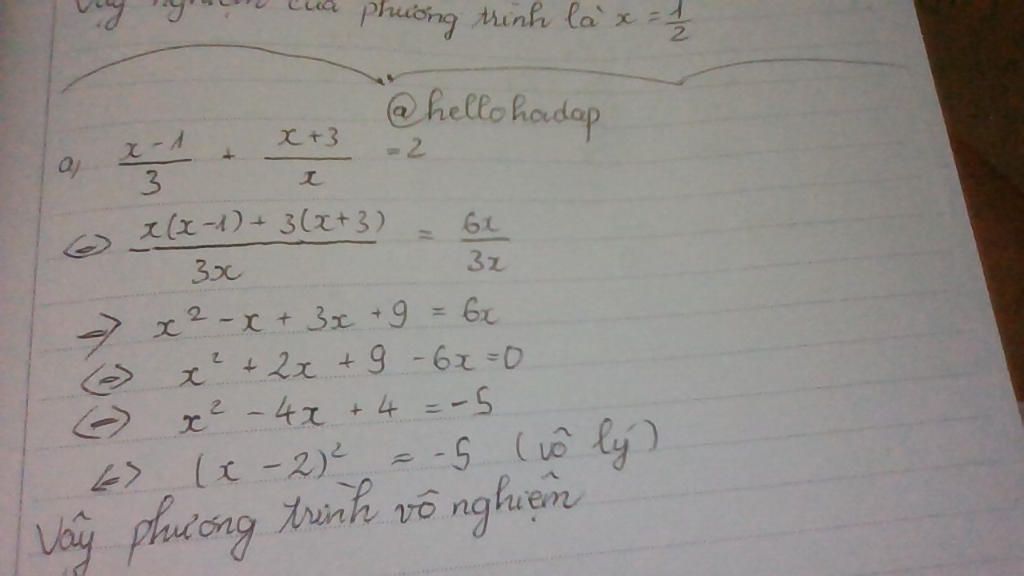 Vậy nghiệm của phương trình là x = 1/2
@hellohadap
a, (x - 1)/3 + (x + 3)/x = 2
<=> (x(x - 1) + 3(x + 3))/3x = 6x/3x
=> x² - x + 3x + 9 = 6x
<=> x² + 2x + 9 - 6x = 0
<=> x² - 4x + 4 = -5
<=> (x - 2)² = -5 (vô lý)
Vậy phương trình vô nghiệm